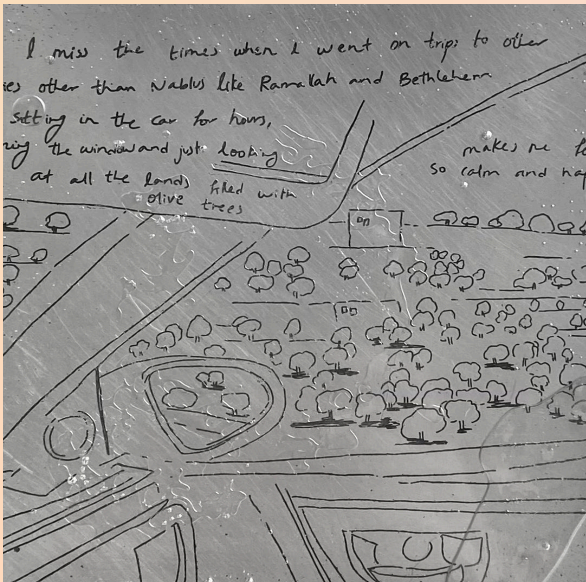 I miss the times when I went on trips to other
ies other than Nablus like Ramallah and Bethlehem
sitting in the car for hours,
ing the window and just looking
at all the lands filled with
olive trees
makes me fe
so calm and hap